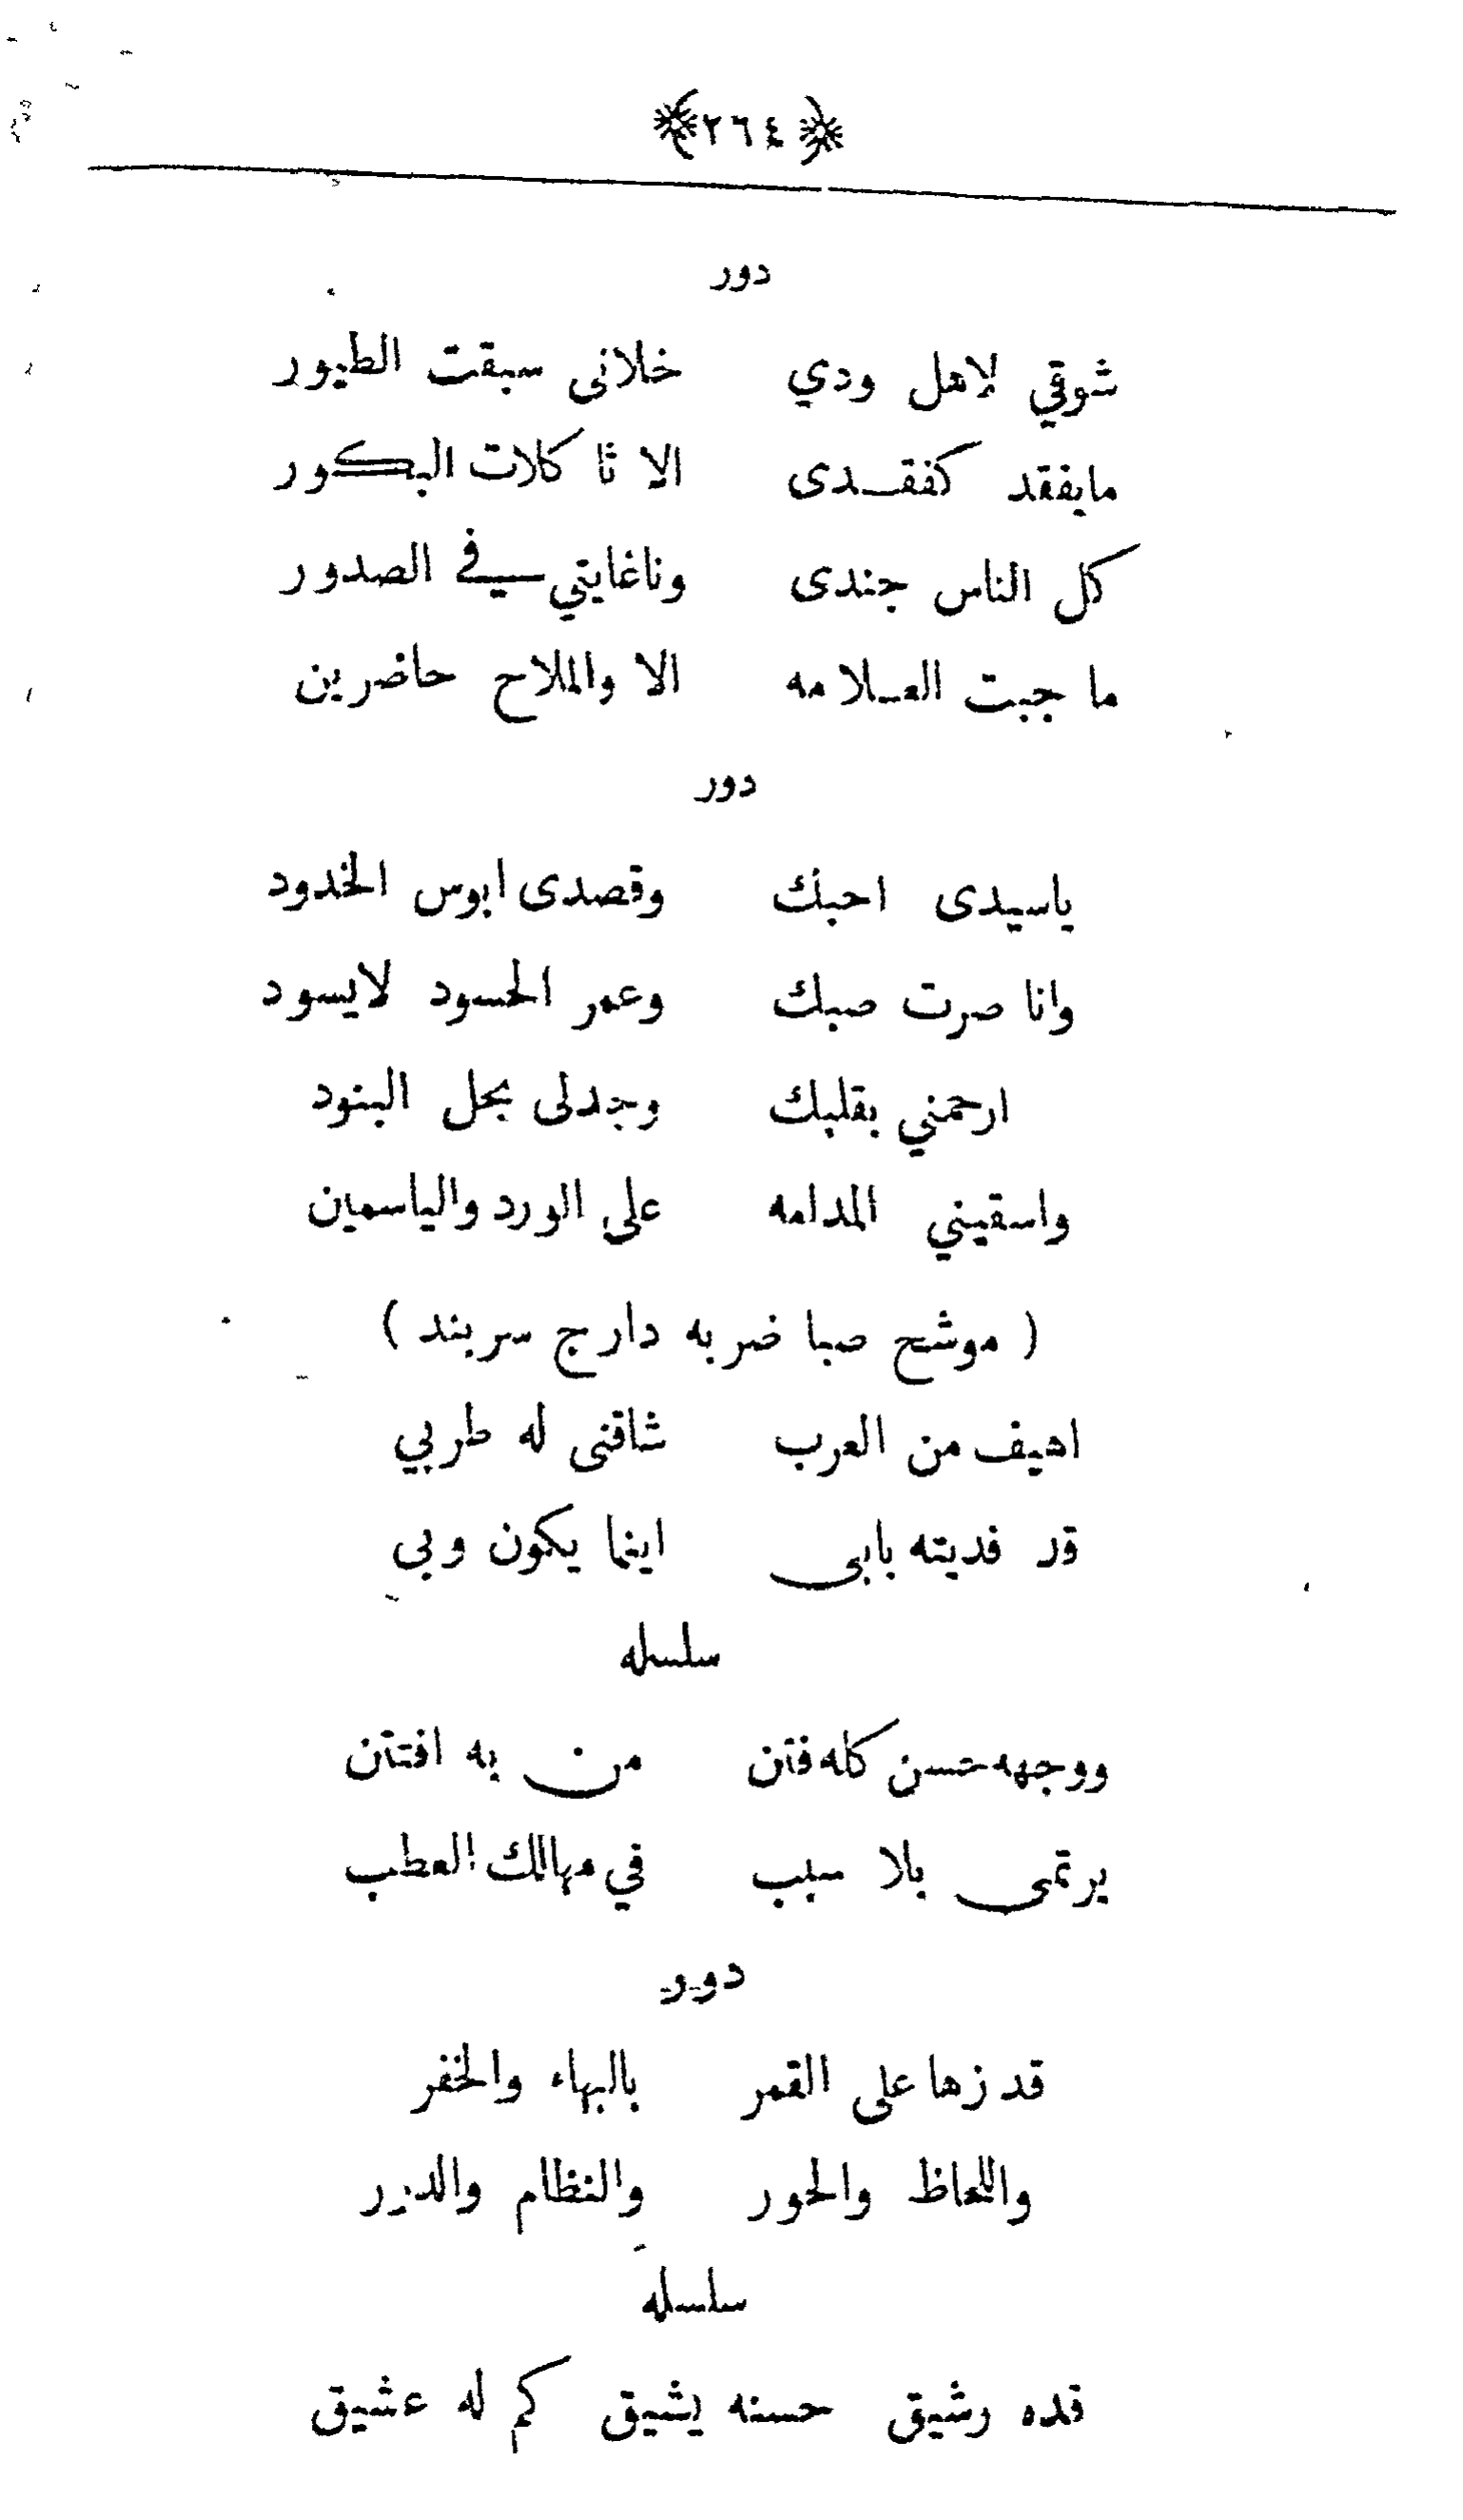 ﴿٢٦٤﴾
دور
شوقي لاهل ودي خلانى سبقت الطيور
مايفقد كفقدى الا ثاكلات البكور
كل الناس جندى وناغايتي في الصدور
ما جبت السلامه الا والملاح حاضرين
دور
ياسيدى احبك وقصدى ابوس الخدود
وانا صرت صبك وعمر الحسود لايسود
ارحمني بقلبك وجدلى بحل البنود
واسقيني المدامه على الورد والياسمين
( موشح صبا ضربه دارج سربند )
اهيف من العرب شاقنى له طربي
قد فديته بابى اينما يكون وبي
سلسله
ووجهه حسن كله فتن من به افتتن
يرتمى بلا سبب في مهالك العطب
دور
قد زها على القمر بالبهاء والخفر
واللحاظ والحور والنظام والدرر
سلسله
قده رشيق حسنه يشيق كم له عشيق